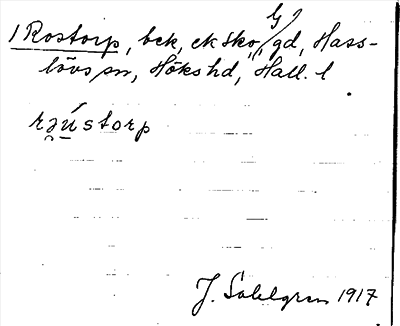 1 Rostorp, bck, ek sko, G/gd, Hass-
lövs sn, Höks hd, Hall. l
rəústorp
J. Sahlgren 1917